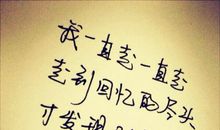 我一直走一直走
走到回忆的尽头
才发现